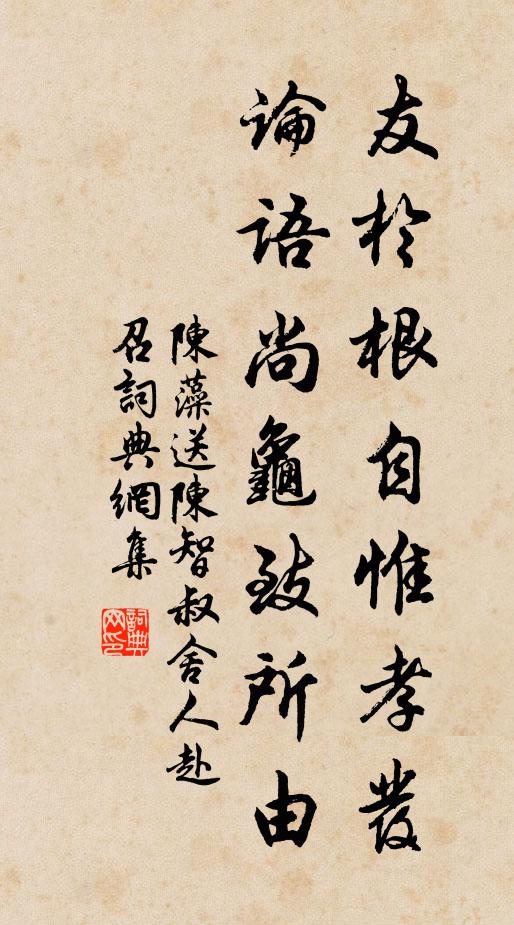 友於根自惟孝發
論語尚龜致所由
陳藻送陳智叔舍人赴
召詞典網集
詞典網印